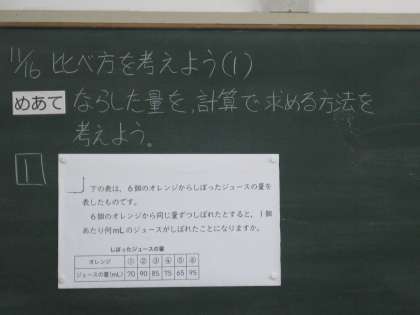 11/16 比べ方を考えよう(1)
めあて ならした量を、計算で求める方法を
考えよう。
1
下の表は、6個のオレンジからしぼったジュースの量を
表したものです。
6個のオレンジから同じ量ずつしぼれたとすると、1個
あたり何mLのジュースがしぼれたことになりますか。
しぼったジュースの量
オレンジ ① ② ③ ④ ⑤ ⑥
ジュースの量(mL) 70 90 85 75 65 95